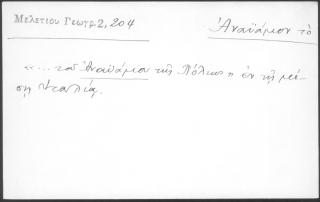 Μελετίου Γεωγρ. 2, 204
Ἀναϋάμιον τὸ
«... τοῦ Ἀναϋάμου τῆς Πόλεως ἐν τῇ μέ-
σῃ Ἰταλίᾳ.